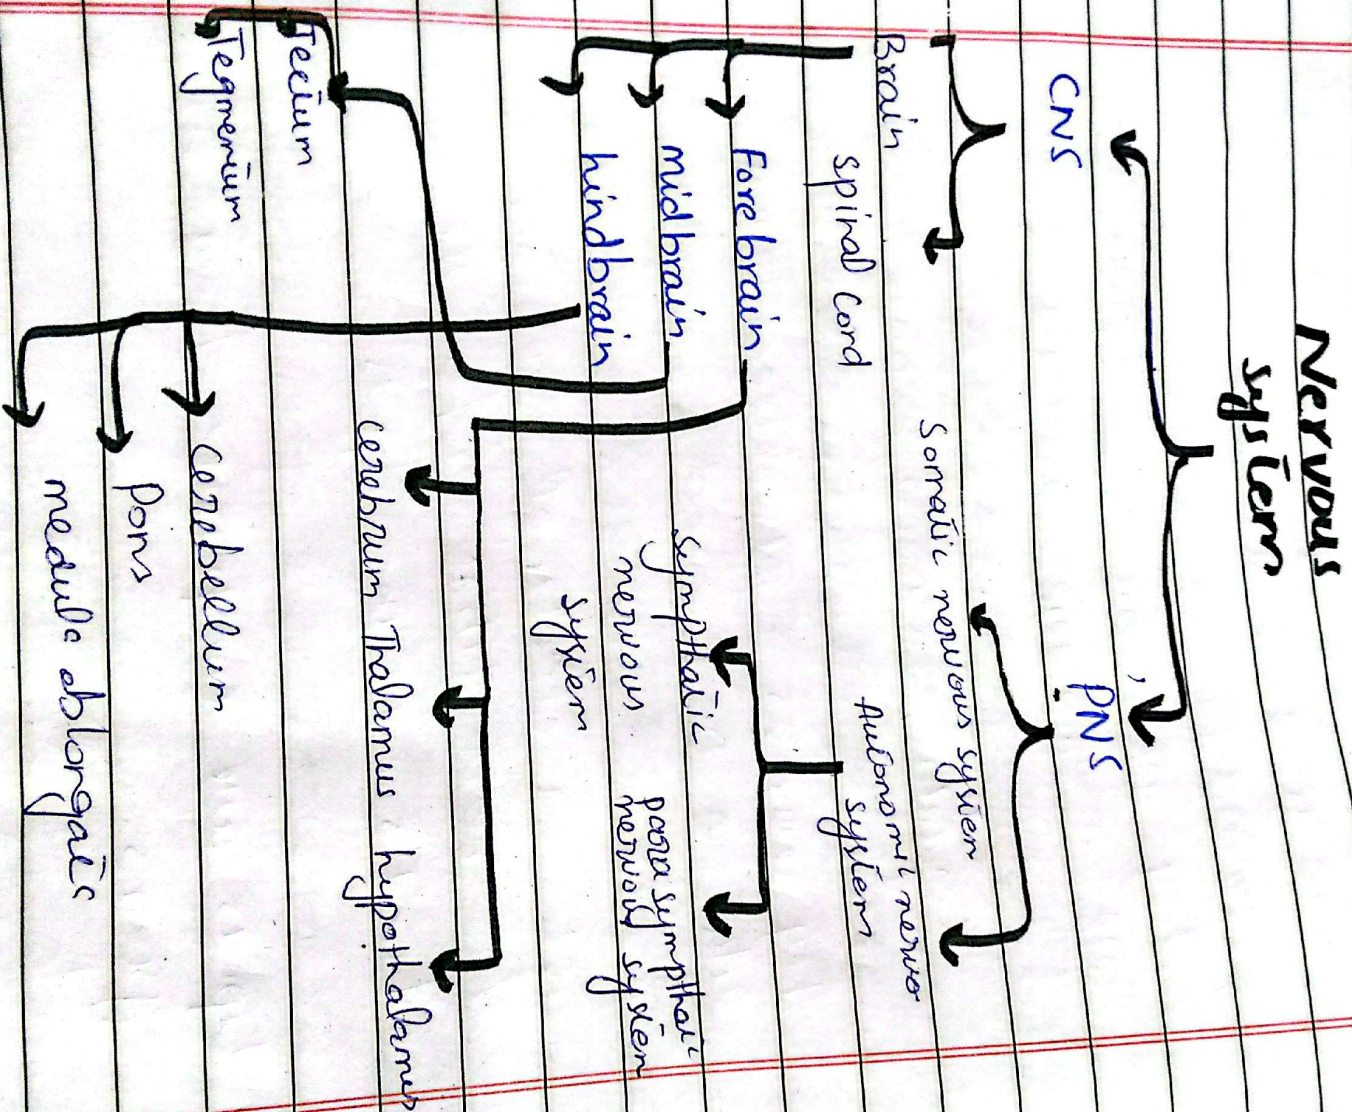 Nervous
system
CNS
PNS
Brain
spinal cord
Somatic nervous system
Autonomi nervo
system
Forebrain
midbrain
hindbrain
sympthatic
nervous
system
parasympthatic
nervous system
cerebrum Thalamus hypothalamus
Tectum
Tegmentum
Cerebellum
Pons
medula oblongate